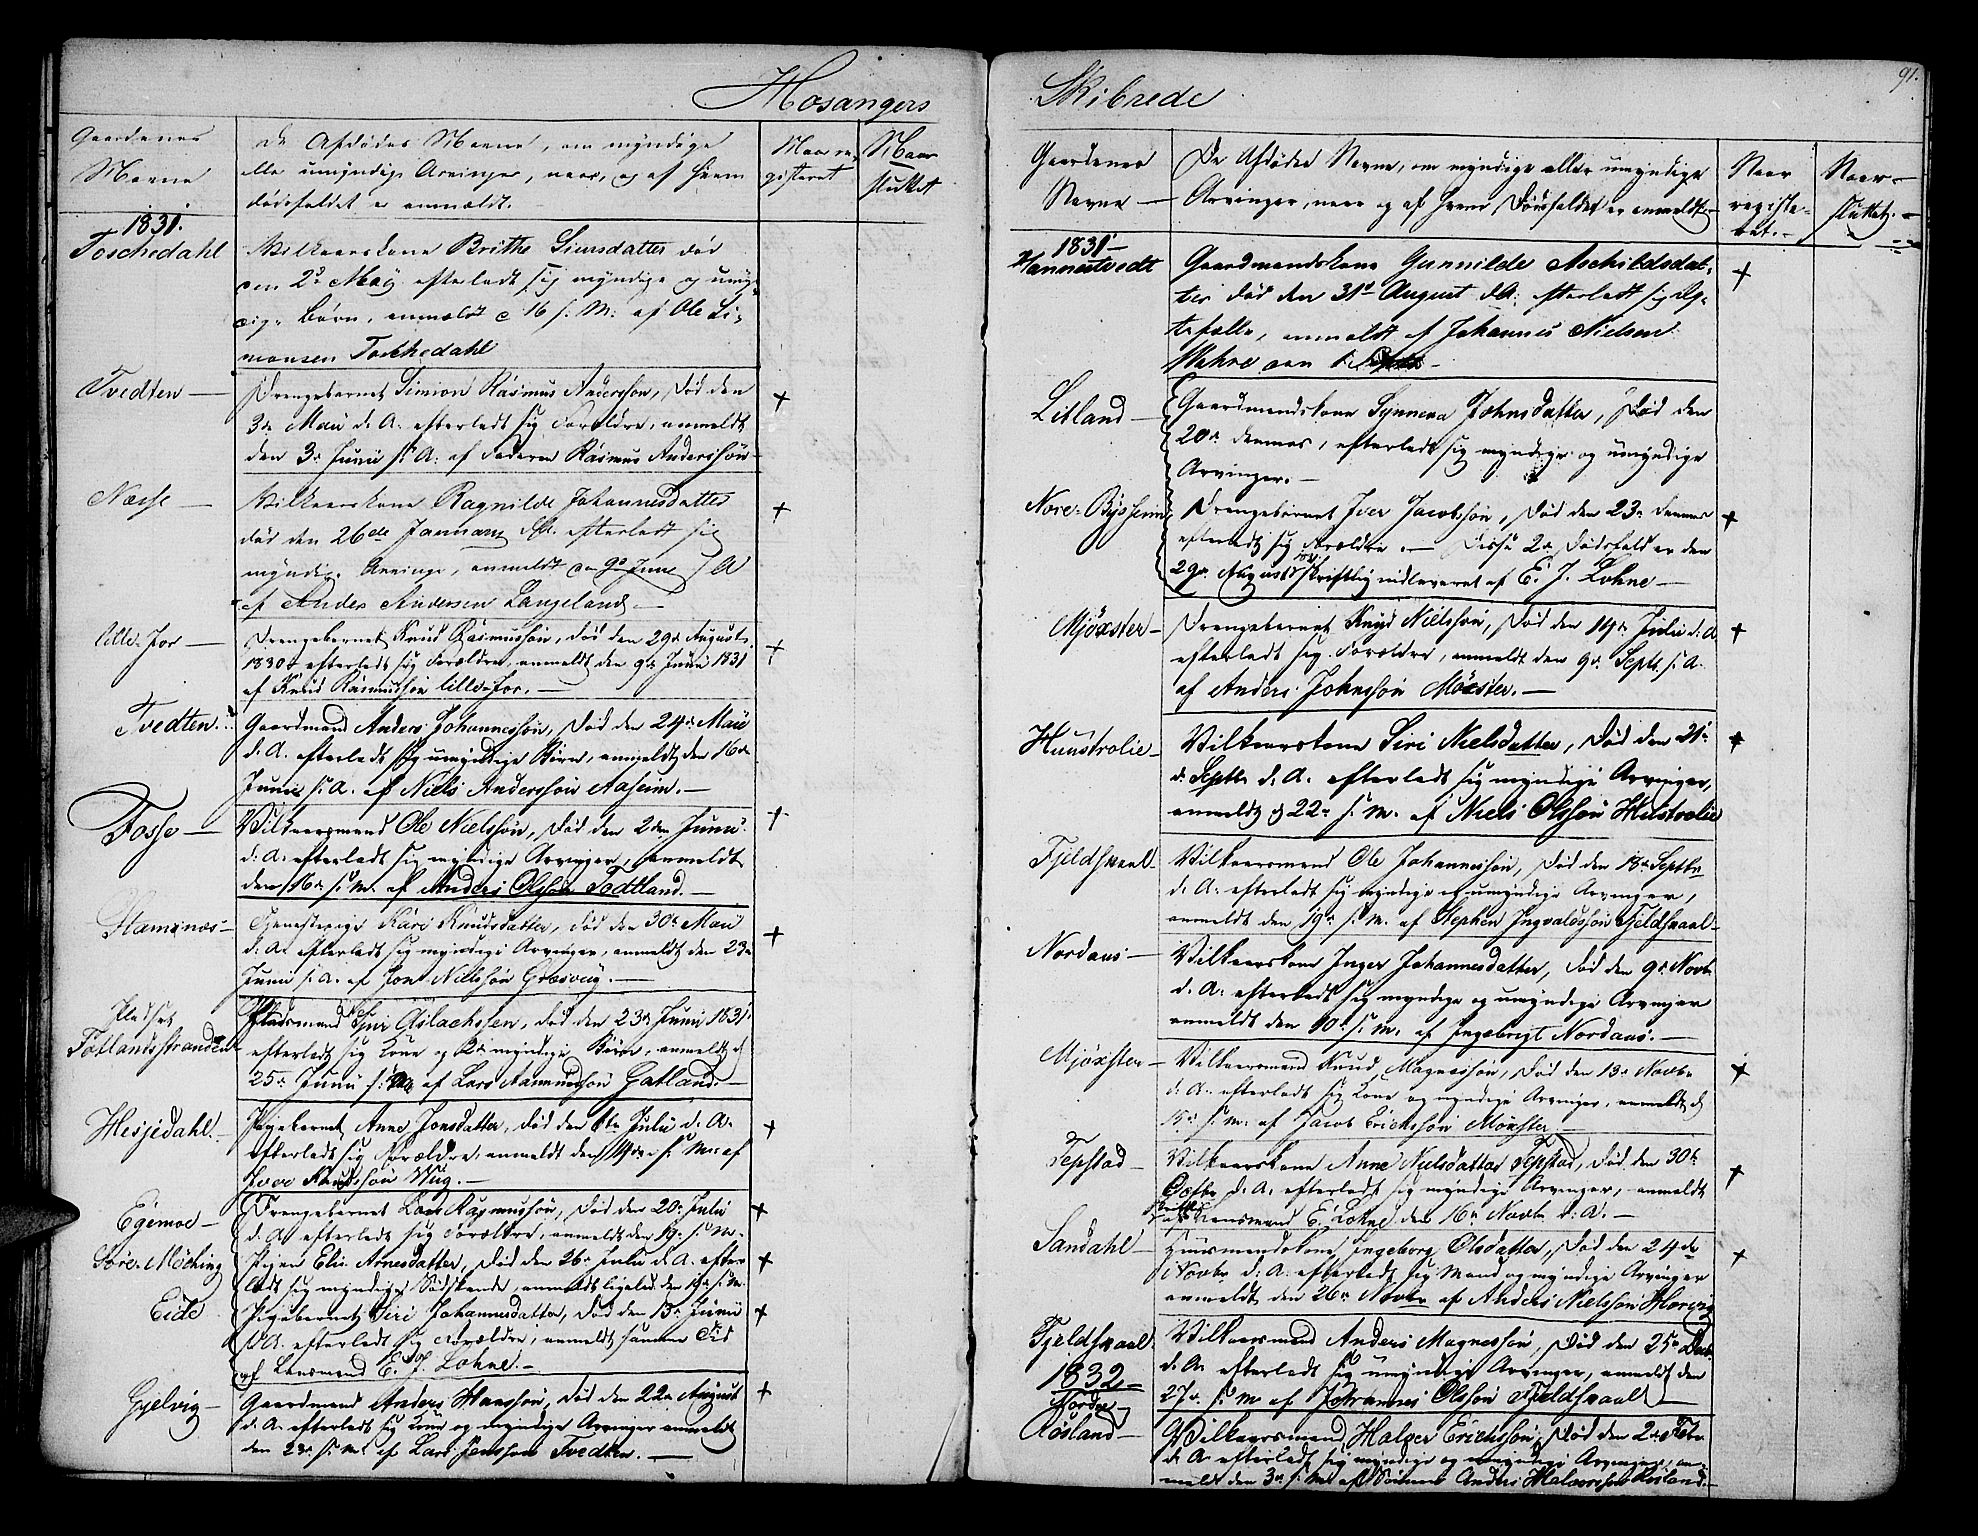 Hosangers
Gaardenes
Navne
De Afdødes Navne, om myndige
elle umyndige Arvinger, naar, og af hvem
dødsfaldet er anmældt.
Naar re-
gisteret
Naar
sluttet
1831.
Toschedahl
Vilkaarskone Brithe Simersdatter død
den 2d May efterladt sig myndige og umyn-
dige Børn, anmældt d 16 s. M. af Ole Si-
monsen Toschedahl
Tvedten —
Drengebarnet Simon Rasmus Andersson, død den
3de Maii d. A. efterladt sig Forældre, anmeldt
den 3de Junii s. A. af Faderen Rasmus Andersson
Næsse —
Vilkaarskone Ragnilde Johannesdatter
død den 26de January d. A. efterladt sig
myndige Arvinge, anmeldt den 9d June s A
af Anders Andersen Langeland. —
Lille-For —
Drengebarnet Knud Rasmussøn, død den 29de August
1830 efterladt sig Forældre, anmeldt den 9de Junii 1831
af Knud Rasmussøn lille-for. —
Tvedten
Gaardmand Anders Johannessøn, død den 24de Maii
d. A. efterladt sig umyndige Børn, anmeldt den 16de
Junii s. A. af Niels Anderssøn Aaseim. —
Fosse —
Vilkaarsmand Ole Nielssøn, død den 2den Junii
d. A. efterladt sig myndige Arvinger, anmeldt
den 16de s. M. af Anders Olssøn Todtland. —
Hamenæs —
Tjenestepige Kari Knudsdatter, død den 30de Maii
d. A. efterladt sig myndige Arvinger, anmeldt den 23de
Junii s. A. af Jon Nielssøn Græsvig. —
Pladset
Totlandsstranden
Pladsmand Aslachssen, død den 23de Junii 1831
efterladt sig Kone og 2de myndige Børn, anmeldt d
25de Junii s. A. af Lars Aamundssøn Gatland —
Hesjedahl. —
Pigebarnet Anne Jonsdatter, død den 1te Julii d. A.
efterladt sig Forældre, anmeldt den 14de s. M. af
Iver Knudssøn Wiig. —
Egemoe —
Drengebarnet Lars Rasmussøn, død den 20de Julii
d. A. efterladt sig Forældre, anmeldt den 19de s. M.
Søre-Möching
Pigen Eli Arnesdatter, død den 26de Julii d. A. efter-
ladt sig myndige Sødskende, anmeldt ligeled. den 19de s. M.
Eide
Pigebarnet Siri Johannesdatter, død den 13de Junii
d. A. efterladt sig Forældre, anmeldt samme Tid
af Lensmand E. J. Lohne. —
Gjelvig —
Gaardmand Anders Hanssøn, død den 22de August
d. A. efterladt sig Kone og myndige Arvinger anmeldt
den 23de s. M. af Lars Jenssøn Tvedten. —
Skibrede
91.
Gaardenes
Navne —
De Afdødes Navne, om myndige eller umyndige
Arvinger, naar og af hvem Dødsfaldet er anmeldt. —
Naar
registe-
ret. —
Naar
sluttet. —
1831 —
Hannestvedt
Gaardmandskone Gunnilde Aschildsdat-
ter død den 31d August d A: efterladt sig Eg-
tefælle, anmeldt af Johannes Nielsen
Mehre den 1
Litland —
Gaardmandskone Synneva Johnsdatter, død den
20de dennes, efterladt sig myndige og umyndige
Arvinger. —
Nore-Bysseim
Drengebarnet Iver Jacobssøn, død den 23de dennes
efterladt sig Forældre. — Disse 2de Dødsfald er den
29de August skriftlig indleveret af E. J. Lohne —
Mjöxster —
Drengebarnet Knud Nielssøn, død den 14de Julii d. A.
efterladt sig Forældre, anmeldt den 9de Septr. s. A.
af Anders Johnssøn Möxster. —
Huustrolie —
Vilkaarskone Siri Nielsdatter, død den 21de
d. Septbr d. A. efterladt sig myndige Arvinger,
anmeldt d 22de s. M. af Niels Olssøn Hustrolie
Fjeldskaal —
Vilkaarsmand Ole Johannessøn, død den 18de Septbr
d. A. efterladt sig myndige og umyndige Arvinger,
anmeldt den 19de s. M. af Stephen Ingvaldssøn Fjeldskaal —
Nordaas —
Vilkaarskone Inger Johannesdatter, død den 9de Novbr
d. A. efterladt sig myndige og umyndige Arvinger
anmeldt den 10de s. M. af Ingebrigt Nordaas. —
Mjöxster —
Vilkaarsmand Knud Magnessøn, død den 13de Novbr
d. A. efterladt sig Kone og myndige Arvinger, anmeldt d
15de s. M. af Jacob Erichssøn Möxster. —
Tepstad —
Vilkaarskone Anne Nielsdatter Tepstad, død den 30te
Octbr d. A. efterladt sig myndige Arvinger, anmeldt
skriftl. af Lensmand E. Lohne den 16de Novbr d. A. —
Sandahl —
Huusmandskone Ingeborg Olsdatter, død den 24de
Novbr d. A. efterladt sig Mand og myndige Arvinger
anmeldt den 26de Novbr af Anders Nielssøn Horvig
Fjeldskaal
Vilkaarsmand Anders Magnessøn, død den 25de Decbr.
d. A. efterladt sig umyndige Arvinger, anmeldt den
27de s. M af Johannes Olssøn Fjeldskaal —
1832 —
Nordre
Røsland —
Vilkaarsmand Halger Erichssøn, død den 2de Febr.
d. A. efterladt sig myndige og umyndige Arvinger, an-
meldt den 3de s. M. af Sønnen Anders Halversøn Røsland. —